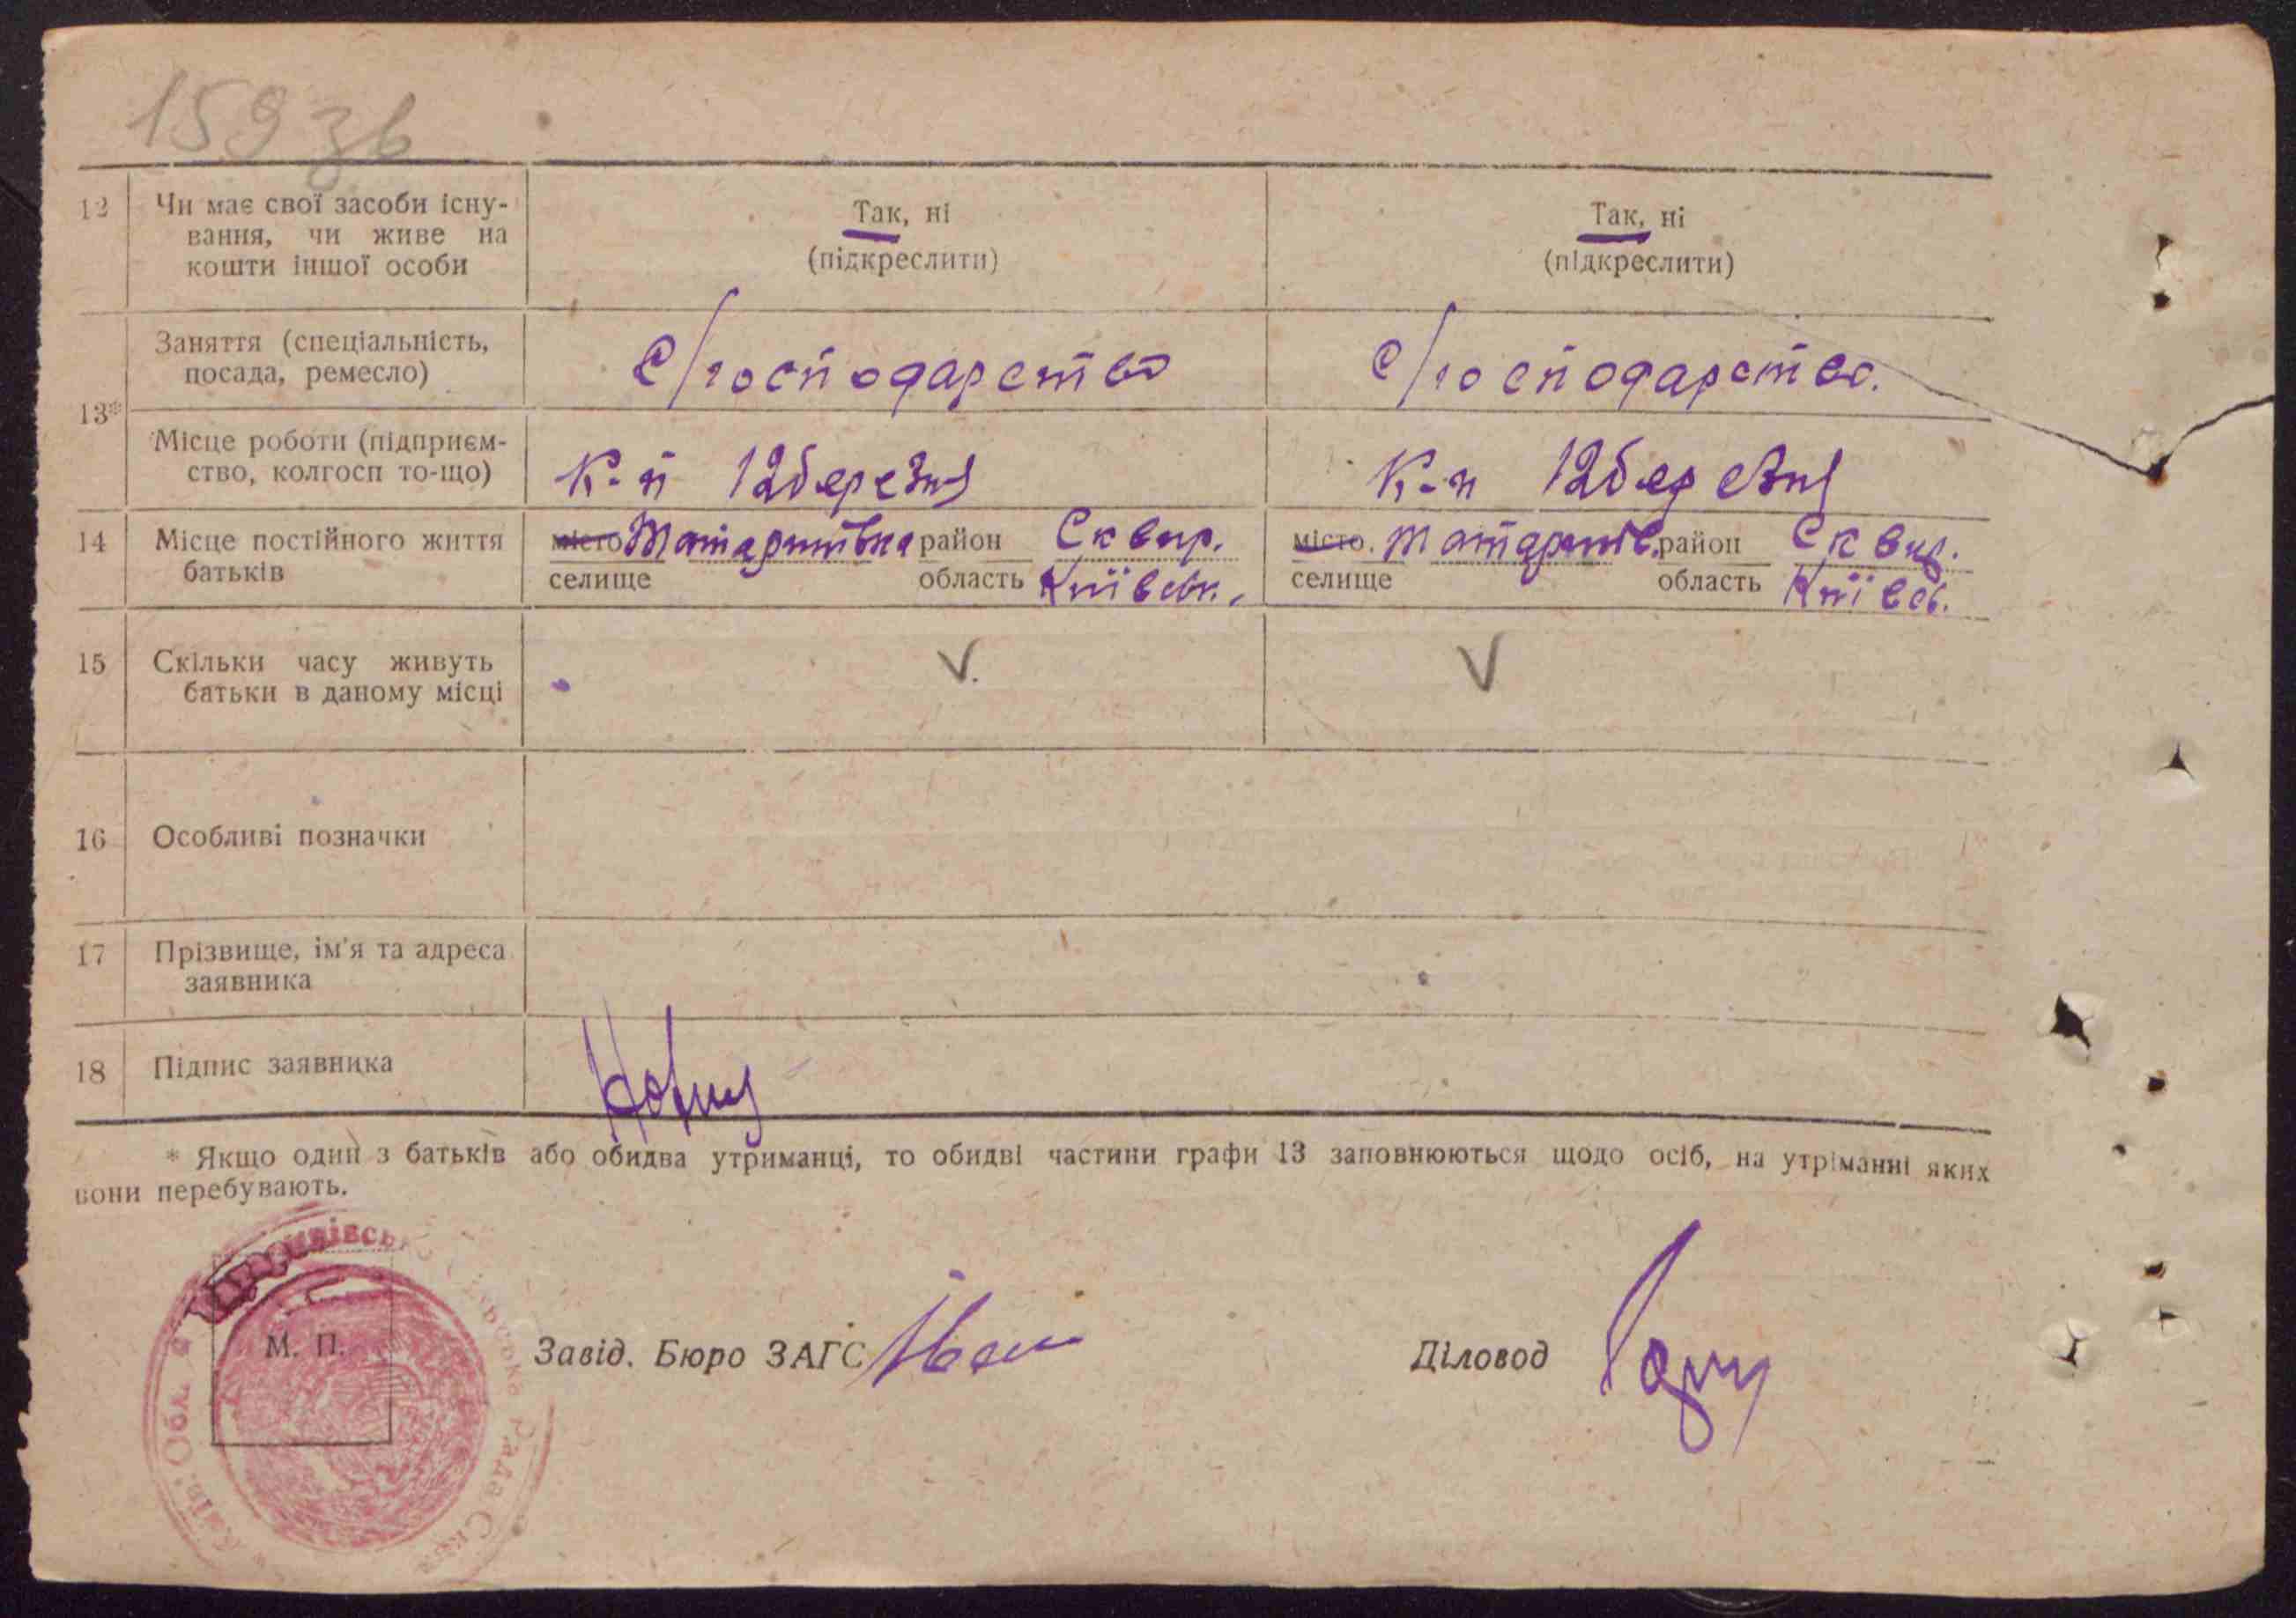 159 зв
12 Чи має свої засоби існу-
вання, чи живе на
кошти іншої особи
Так, ні
(підкреслити)
Так, ні
(підкреслити)
13*
Заняття (спеціальність,
посада, ремесло)
С/господарство
С/господарство.
Місце роботи (підприєм-
ство, колгосп то-що)
К-п 12 березня
К-п 12 березня
14 Місце постійного життя
батьків
місто Татаринівка район Сквир.
селище область Київськ.
місто. Татаринів. район Сквир.
селище область Київсь.
15 Скільки часу живуть
батьки в даному місці
V.
V
16 Особливі позначки
17 Прізвище, ім'я та адреса
заявника
18 Підпис заявника
* Якщо один з батьків або обидва утриманці, то обидві частини графи 13 заповнюються щодо осіб, на утріманні яких
вони перебувають.
Київ. Обл.
Сільська Рада
М. П.
Завід. Бюро ЗАГС
Діловод